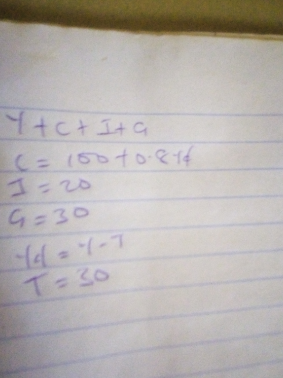 Y+C+I+G
C=100+0.8Yd
I=20
G=30
Yd=Y-T
T=30